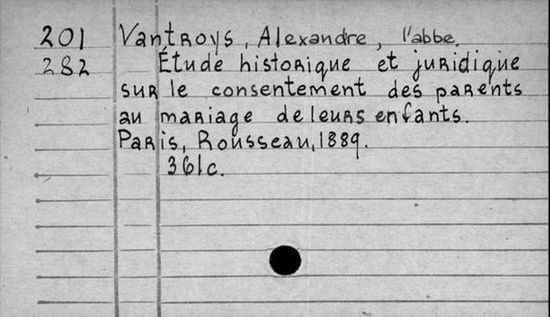 201 Vantroys, Alexandre, l'abbe.
282 Étude historique et juridique
sur le consentement des parents
au mariage de leurs enfants.
Paris, Rousseau, 1889.
361c.